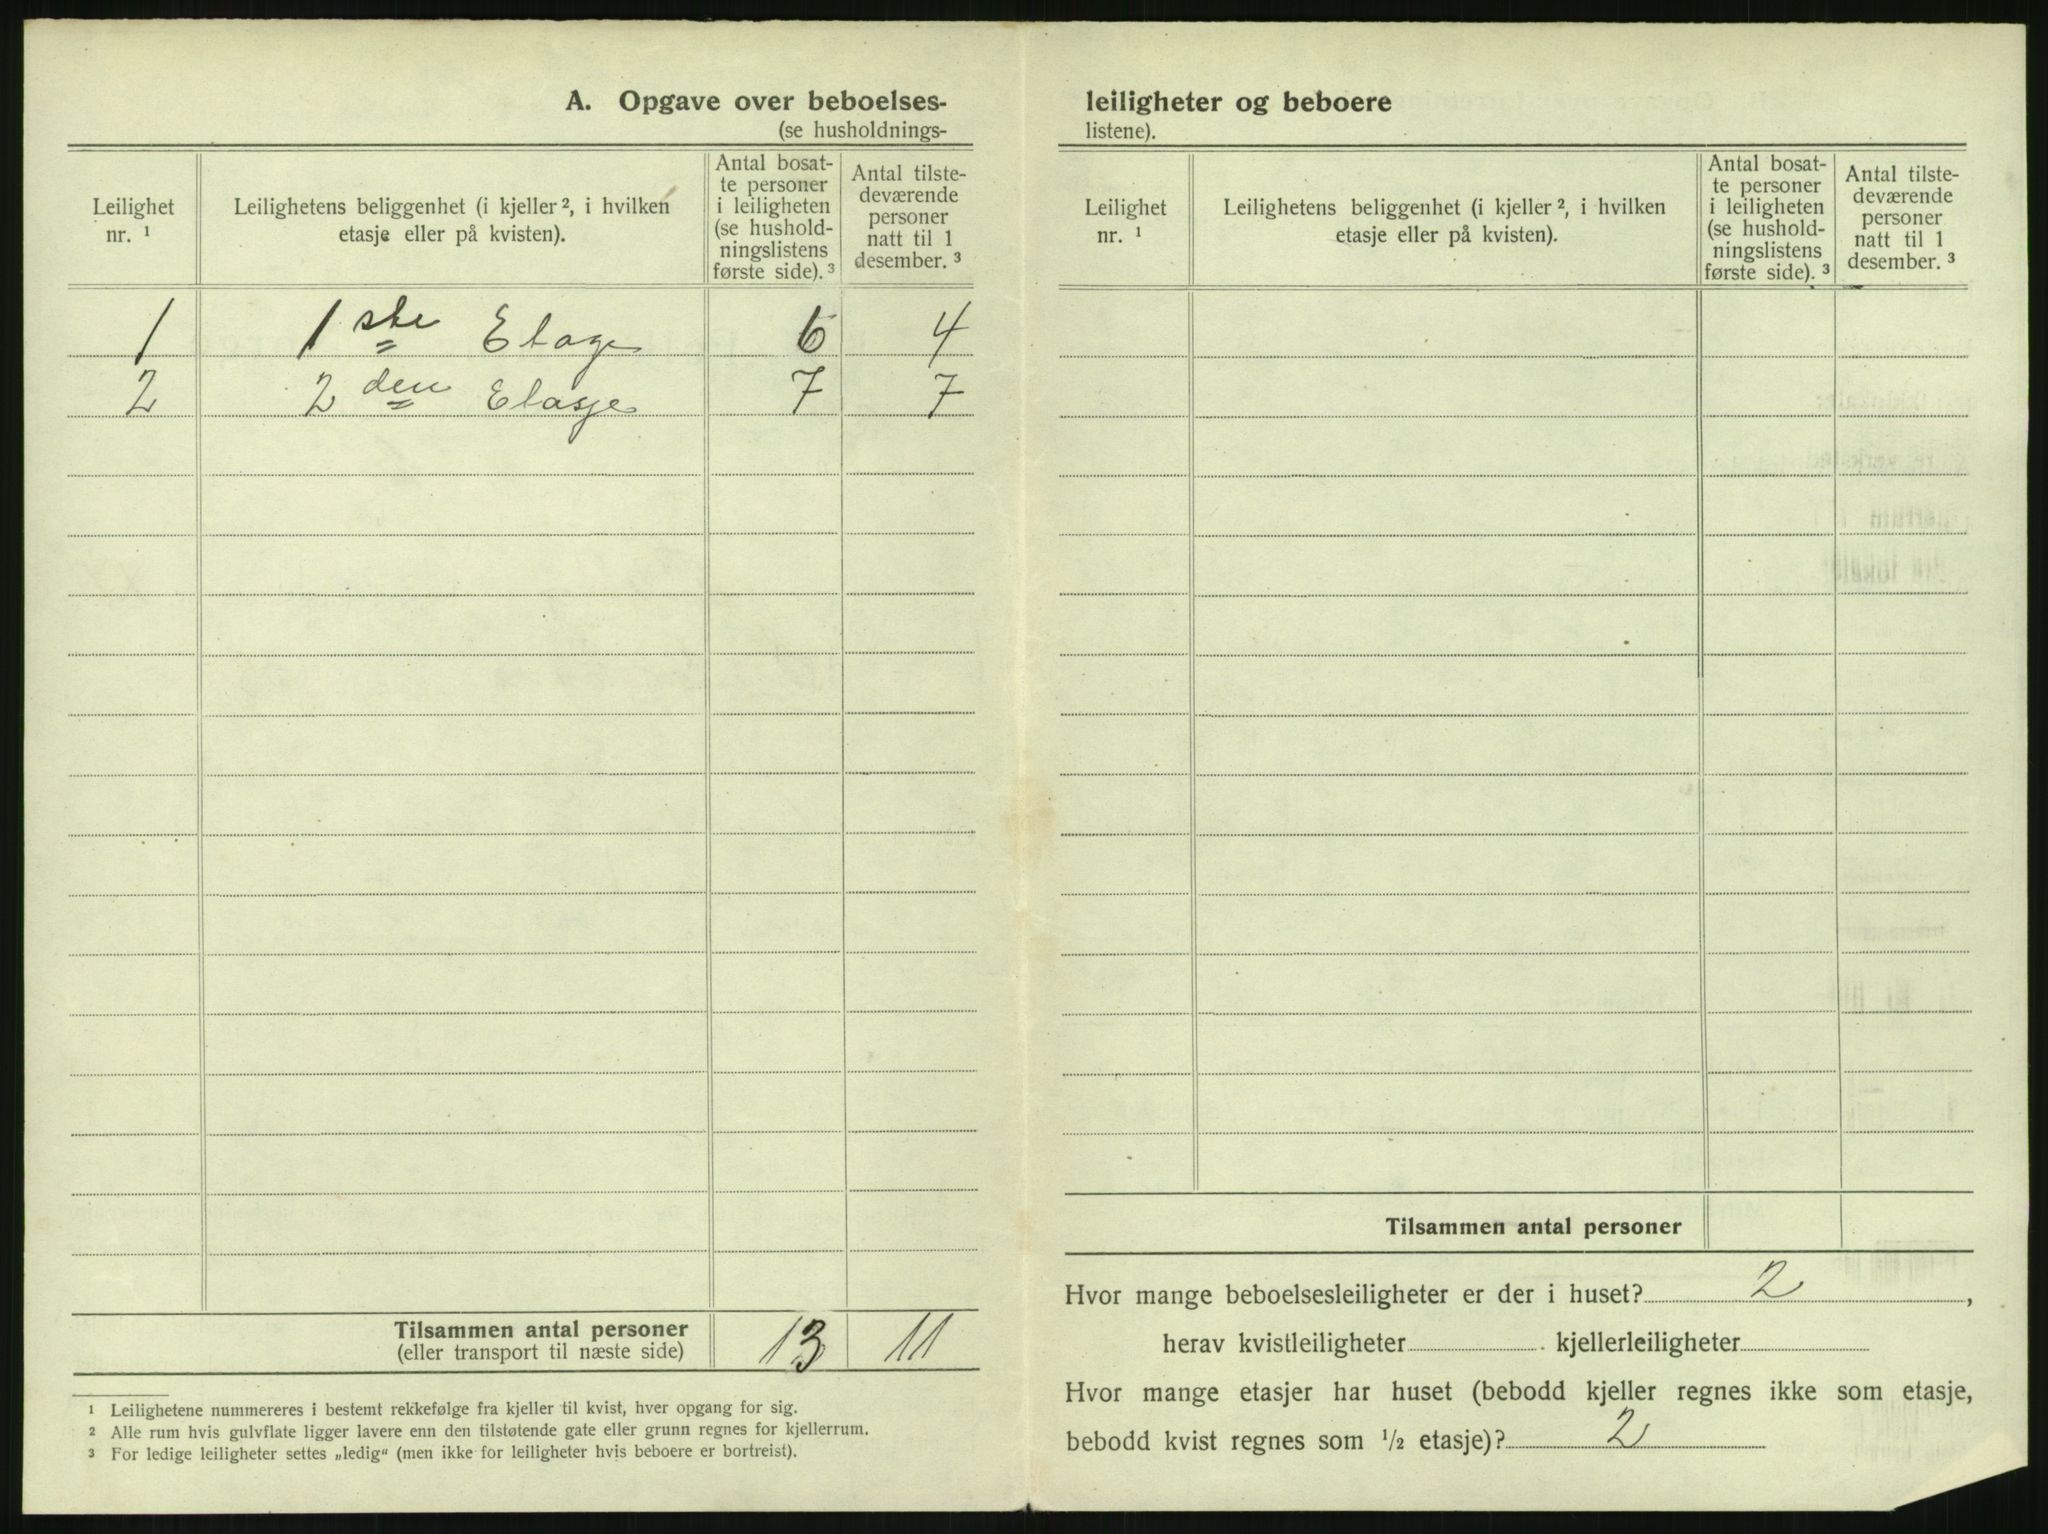 A. Opgave over beboelses-
(se husholdnings-
Leilighet
nr. ¹
Leilighetens beliggenhet (i kjeller ², i hvilken
etasje eller på kvisten).
Antal bosat-
te personer
i leiligheten
(se hushold-
ningslistens
første side). ³
Antal tilste-
deværende
personer
natt til 1
desember. ³
1 1ste Etage 6 4
2 2den Etasje 7 7
Tilsammen antal personer
(eller transport til næste side)
13 11
¹ Leilighetene nummereres i bestemt rekkefølge fra kjeller til kvist, hver opgang for sig.
² Alle rum hvis gulvflate ligger lavere enn den tilstøtende gate eller grunn regnes for kjellerrum.
³ For ledige leiligheter settes „ledig“ (men ikke for leiligheter hvis beboere er bortreist).
leiligheter og beboere
listene).
Leilighet
nr. ¹
Leilighetens beliggenhet (i kjeller ², i hvilken
etasje eller på kvisten).
Antal bosat-
te personer
i leiligheten
(se hushold-
ningslistens
første side). ³
Antal tilste-
deværende
personer
natt til 1
desember. ³
Tilsammen antal personer
Hvor mange beboelsesleiligheter er der i huset? 2,
herav kvistleiligheter kjellerleiligheter
Hvor mange etasjer har huset (bebodd kjeller regnes ikke som etasje,
bebodd kvist regnes som ½ etasje)? 2